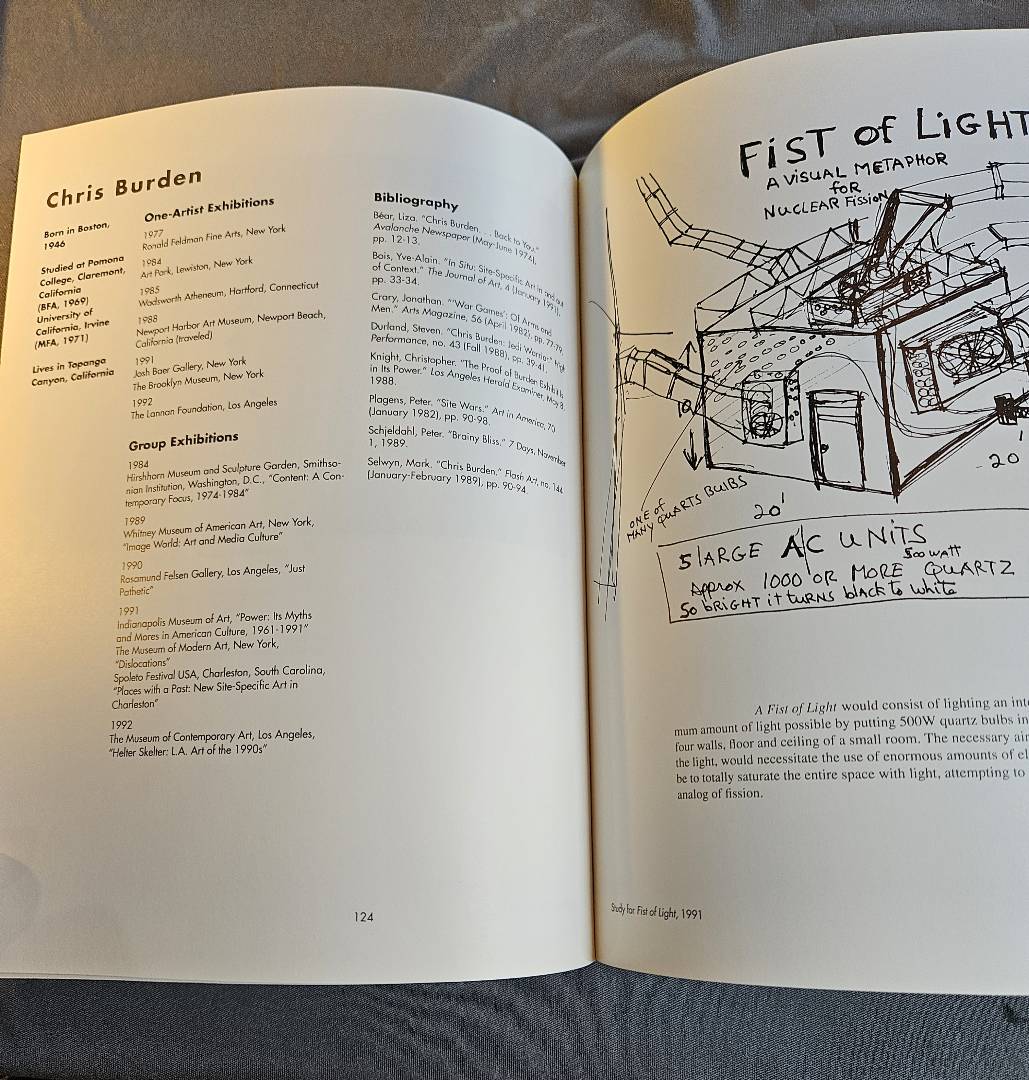 Chris Burden
Born in Boston,
1946
Studied at Pomona
College, Claremont,
California
(BFA, 1969)
University of
California, Irvine
(MFA, 1971)
Lives in Topanga
Canyon, California
One-Artist Exhibitions
1977
Ronald Feldman Fine Arts, New York
1984
Art Park, Lewiston, New York
1985
Wadsworth Atheneum, Hartford, Connecticut
1988
Newport Harbor Art Museum, Newport Beach,
California (traveled)
1991
Josh Baer Gallery, New York
The Brooklyn Museum, New York
1992
The Lannan Foundation, Los Angeles
Group Exhibitions
1984
Hirshhorn Museum and Sculpture Garden, Smithso-
nian Institution, Washington, D.C., "Content: A Con-
temporary Focus, 1974-1984"
1989
Whitney Museum of American Art, New York,
"Image World: Art and Media Culture"
1990
Rosamund Felsen Gallery, Los Angeles, "Just
Pathetic"
1991
Indianapolis Museum of Art, "Power: Its Myths
and Mores in American Culture, 1961-1991"
The Museum of Modern Art, New York,
"Dislocations"
Spoleto Festival USA, Charleston, South Carolina,
"Places with a Past: New Site-Specific Art in
Charleston"
1992
The Museum of Contemporary Art, Los Angeles,
"Helter Skelter: L.A. Art of the 1990s"
Bibliography
Béar, Liza. "Chris Burden. . . Back to You."
Avalanche Newspaper (May-June 1974),
pp. 12-13.
Bois, Yve-Alain. "In Situ: Site-Specific Art in and out
of Context." The Journal of Art, 4 (January 1991),
pp. 33-34.
Crary, Jonathan. "'War Games': Of Arms and
Men." Arts Magazine, 56 (April 1982), pp. 77-79.
Durland, Steven. "Chris Burden: Jedi Warrior." High
Performance, no. 43 (Fall 1988), pp. 39-41.
Knight, Christopher. "The Proof of Burden Exhibit Is
in Its Power." Los Angeles Herald Examiner, May 8,
1988.
Plagens, Peter. "Site Wars." Art in America, 70
(January 1982), pp. 90-98.
Schjeldahl, Peter. "Brainy Bliss." 7 Days, November
1, 1989.
Selwyn, Mark. "Chris Burden." Flash Art, no. 144
(January-February 1989), pp. 90-94.
124
FiST of LiGHT
A ViSUAL METAPHOR
foR
NUCLEAR FissioN
ONE of
MANY QUARTS BULBS
20'
20'
5 LARGE A/C UNiTS
500 WATT
Approx 1000 OR MORE QUARTZ
So bRiGHT it tuRNS blAck to white
A Fist of Light would consist of lighting an
mum amount of light possible by putting 500W quartz bulbs in
four walls, floor and ceiling of a small room. The necessary air
the light, would necessitate the use of enormous amounts of
be to totally saturate the entire space with light, attempting to
analog of fission.
Study for Fist of Light, 1991